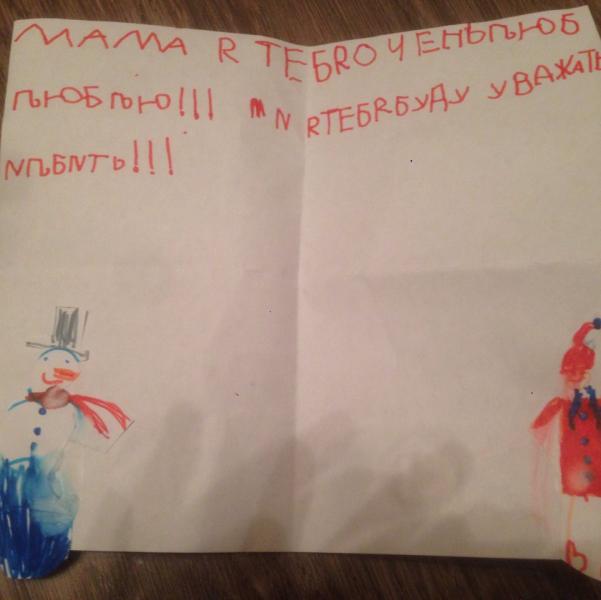 МАМА R ТЕБRО ЧЕНЬЛЮБ
ЛЮБЛЮ!!! М N RТЕБRБУДУ УВАЖАТЬ
NЛБNТЬ!!!